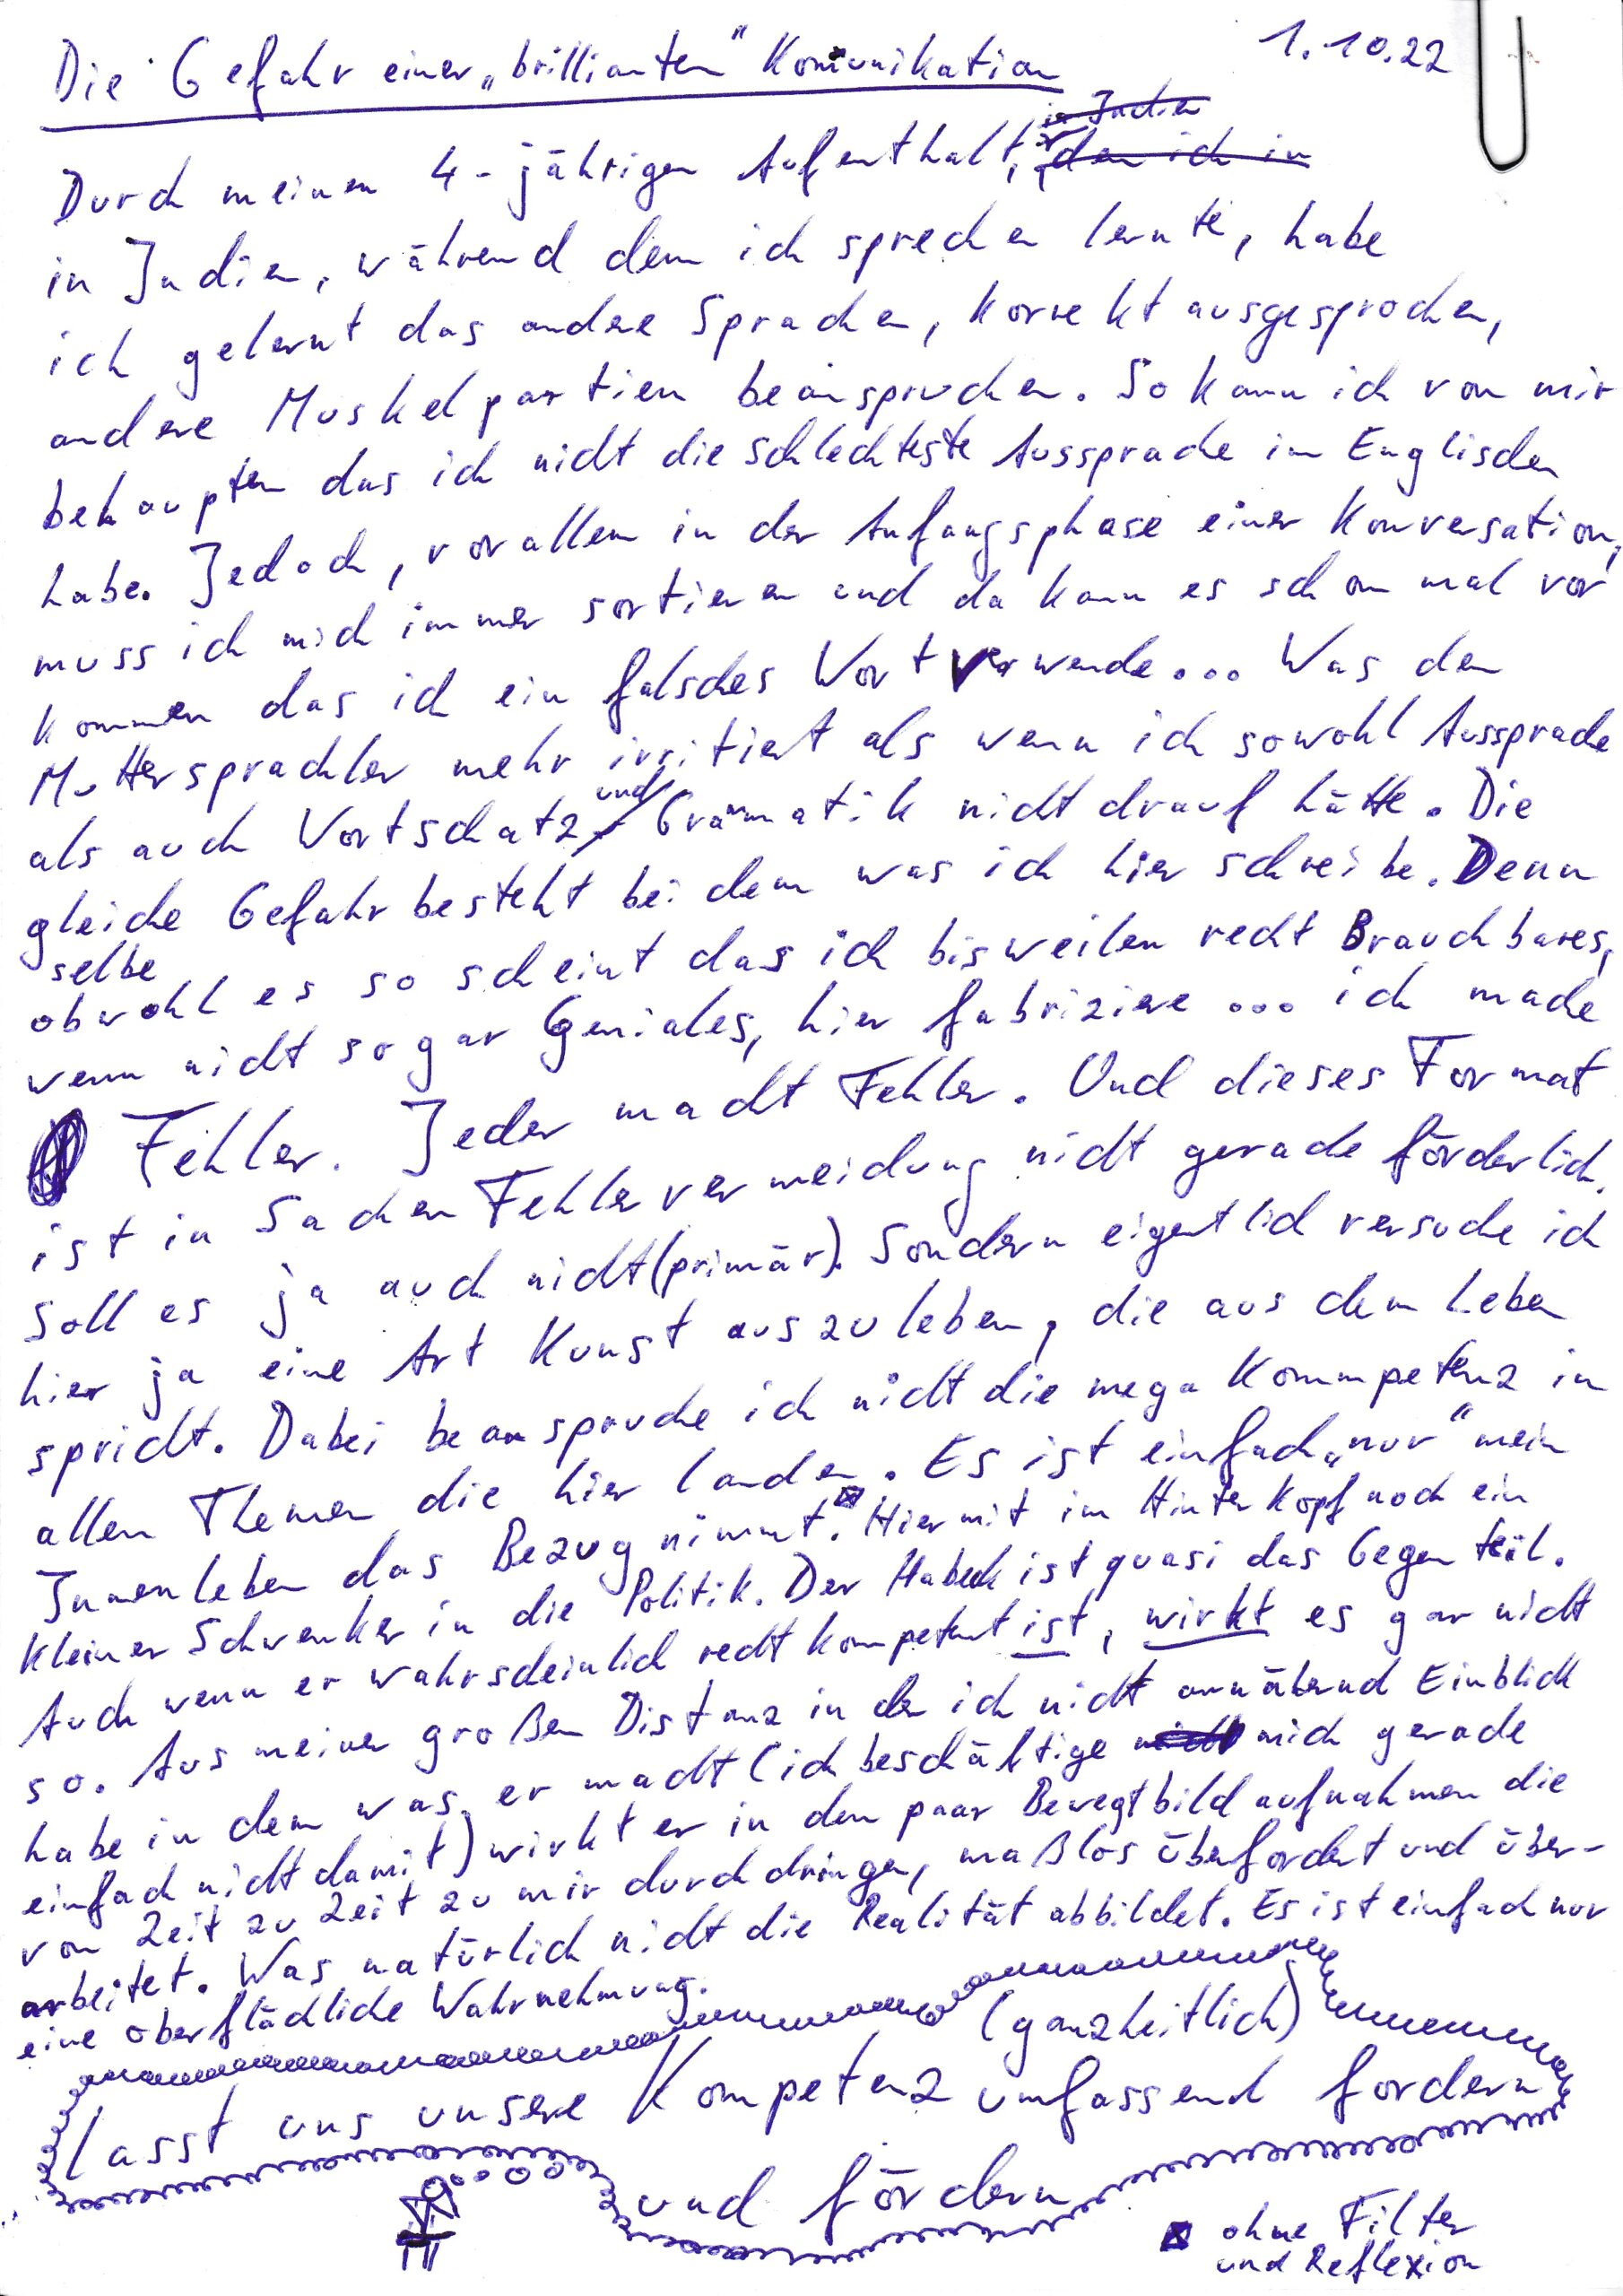 Die Gefahr einer „brillianten" Komunikation
1.10.22
Durch meinen 4-jährigen Aufenthalt, den ich in
in Indien
in Indien, während dem ich sprechen lernte, habe
ich gelernt das andere Sprachen, korrekt ausgesprochen,
andere Muskelpartien beanspruchen. So kann ich von mir
behaupten das ich nicht die schlechteste Aussprache im Englischen
habe. Jedoch, vorallem in der Anfangsphase einer Konversation,
muss ich mich immer sortieren und da kann es schon mal vor
kommen das ich ein falsches Wort verwende... Was den
Muttersprachler mehr irritiert als wenn ich sowohl Aussprache
als auch Wortschatz und Grammatik nicht drauf hätte. Die
gleiche Gefahr besteht bei dem was ich hier schreibe. Denn
selbe
obwohl es so scheint das ich bisweilen recht Brauchbares,
wenn nicht sogar Geniales, hier fabriziere... ich mache
Fehler. Jeder macht Fehler. Und dieses Format
ist in Sachen Fehlervermeidung nicht gerade förderlich.
Soll es ja auch nicht (primär). Sondern eigentlich versuche ich
hier ja eine Art Kunst auszuleben, die aus dem Leben
spricht. Dabei beanspruche ich nicht die mega Kommpetenz in
allen Themen die hier landen. Es ist einfach „nur" mein
Innenleben das Bezug nimmt. Hiermit im Hinterkopf noch ein
kleiner Schwenker in die Politik. Der Habeck ist quasi das Gegenteil.
Auch wenn er wahrscheinlich recht kompetent ist, wirkt es gar nicht
so. Aus meiner großen Distanz in der ich nicht annähernd Einblick
habe in dem was er macht (ich beschäftige nicht mich gerade
einfach nicht damit) wirkt er in den paar Bewegtbildaufnahmen die
von Zeit zu Zeit zu mir durchdringen, maßlos überfordert und über-
arbeitet. Was natürlich nicht die Realität abbildet. Es ist einfach nur
eine oberflächliche Wahrnehmung.
(ganzheitlich)
lasst uns unsere Kompetenz umfassend fordern
und fördern
ohne Filter
und Reflexion